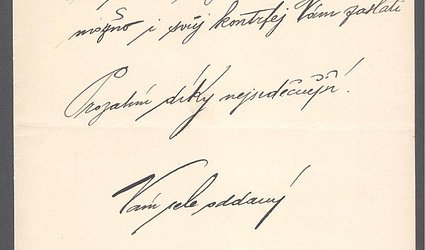 možno i svůj kontrfej Vám zaslati
Prozatím díky nejsrdečnější!
Vám cele oddaný